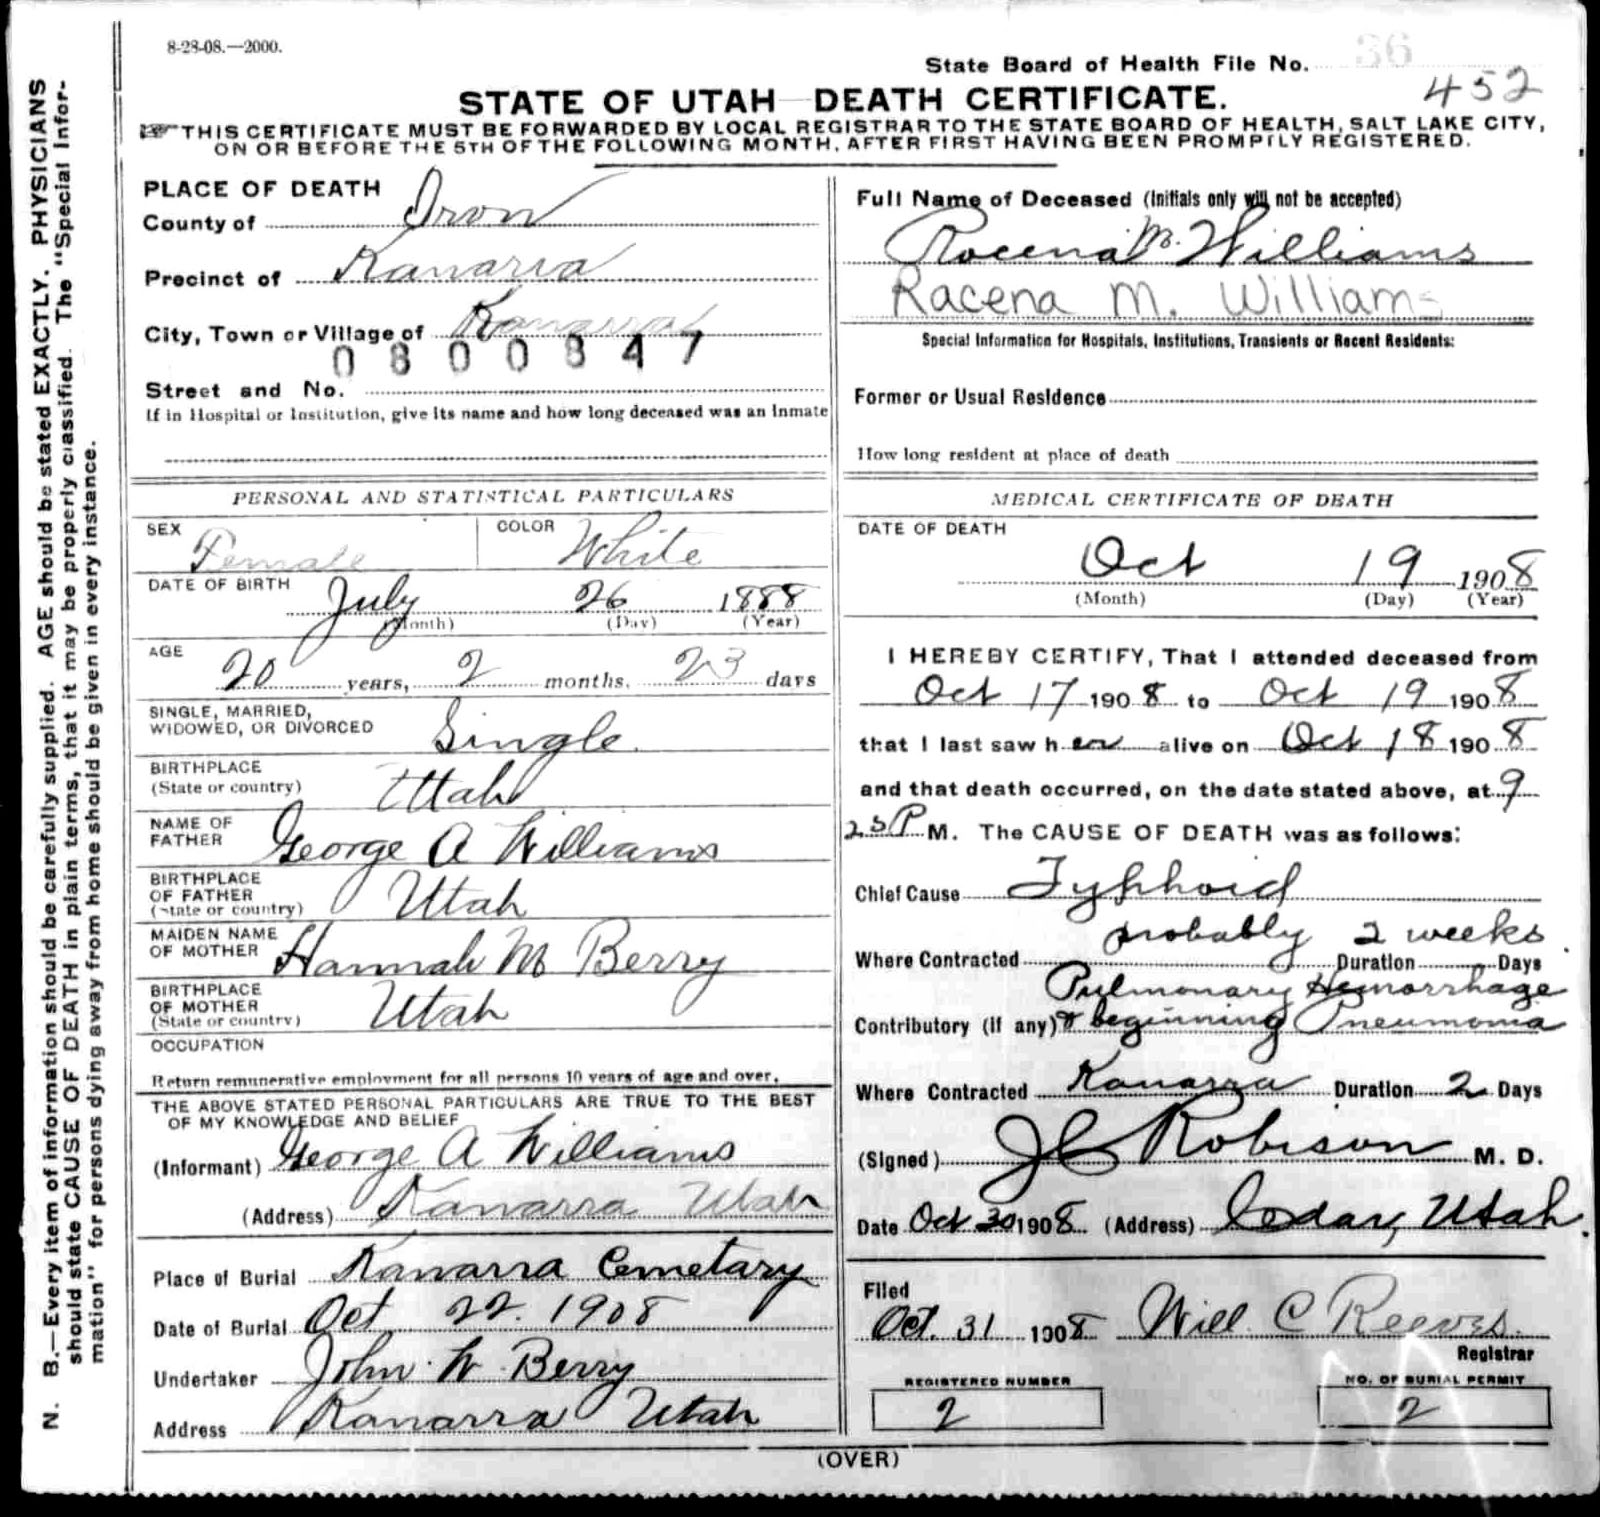 8-28-08.—2000.
State Board of Health File No. 36
452
STATE OF UTAH—DEATH CERTIFICATE.
THIS CERTIFICATE MUST BE FORWARDED BY LOCAL REGISTRAR TO THE STATE BOARD OF HEALTH, SALT LAKE CITY,
ON OR BEFORE THE 5TH OF THE FOLLOWING MONTH, AFTER FIRST HAVING BEEN PROMPTLY REGISTERED.
N. B.—Every item of information should be carefully supplied. AGE should be stated EXACTLY. PHYSICIANS
should state CAUSE OF DEATH in plain terms, that it may be properly classified. The "Special Infor-
mation" for persons dying away from home should be given in every instance.
PLACE OF DEATH
County of Iron
Precinct of Kanarra
City, Town or Village of Kanarra
0800847
Street and No.
If in Hospital or Institution, give its name and how long deceased was an Inmate
PERSONAL AND STATISTICAL PARTICULARS
SEX Female COLOR White
DATE OF BIRTH July 26 1888
(Month) (Day) (Year)
AGE 20 years, 2 months, 23 days
SINGLE, MARRIED,
WIDOWED, OR DIVORCED Single
BIRTHPLACE
(State or country) Utah
NAME OF
FATHER George A Williams
BIRTHPLACE
OF FATHER
(State or country) Utah
MAIDEN NAME
OF MOTHER Hannah M Berry
BIRTHPLACE
OF MOTHER
(State or country) Utah
OCCUPATION
Return remunerative employment for all persons 10 years of age and over.
THE ABOVE STATED PERSONAL PARTICULARS ARE TRUE TO THE BEST
OF MY KNOWLEDGE AND BELIEF
(Informant) George A Williams
(Address) Kanarra Utah
Place of Burial Kanarra Cemetary
Date of Burial Oct 22. 1908
Undertaker John W. Berry
Address Kanarra Utah
Full Name of Deceased (Initials only will not be accepted)
Rocena M. Williams
Racena M. Williams
Special Information for Hospitals, Institutions, Transients or Recent Residents:
Former or Usual Residence
How long resident at place of death
MEDICAL CERTIFICATE OF DEATH
DATE OF DEATH
Oct 19 1908
(Month) (Day) (Year)
I HEREBY CERTIFY, That I attended deceased from
Oct 17 1908 to Oct 19 1908
that I last saw her alive on Oct 18 1908
and that death occurred, on the date stated above, at 9
P M. The CAUSE OF DEATH was as follows:
Chief Cause Typhoid
probably 2 weeks
Where Contracted Duration Days
Pulmonary Hemorrhage
Contributory (if any) & beginning Pneumonia
Where Contracted Kanarra Duration 2 Days
(Signed) J C Robison M. D.
Date Oct 30 1908 (Address) Cedar, Utah
Filed
Oct. 31 1908 Will C Reeves.
Registrar
REGISTERED NUMBER
2
NO. OF BURIAL PERMIT
2
(OVER)